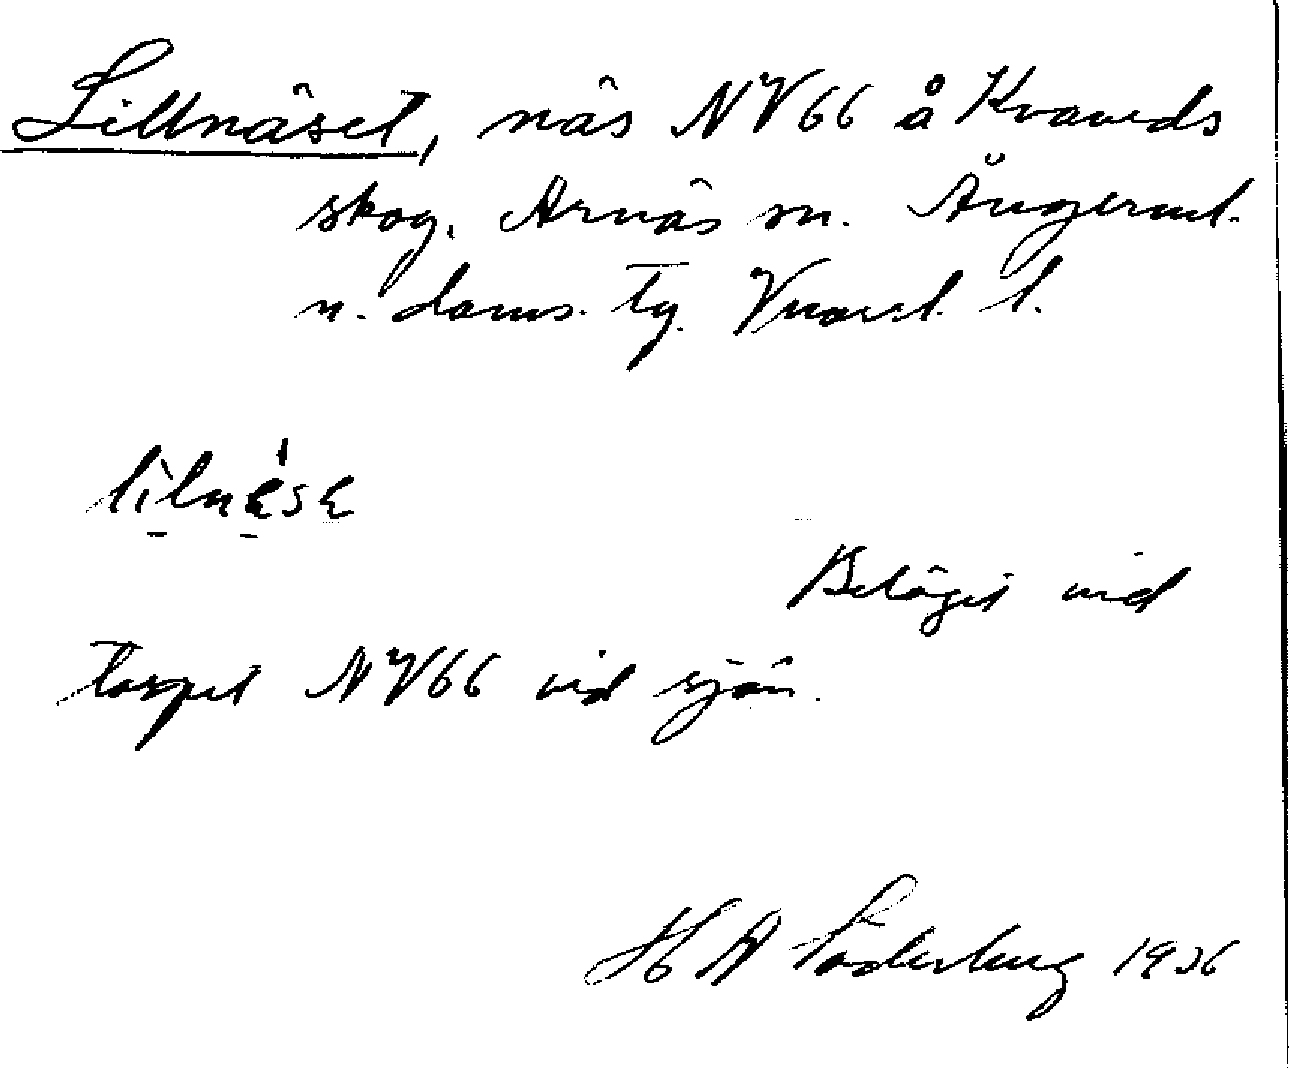 Lillnäset, näs NV66 å Kraveds
skog. Arnäs sn. Ångerml.
n. doms. Tg. Vnorrl. l.
lilnɛ́sɛ
Beläget vid
torpet NV66 vid sjön.
H A Söderberg 1936